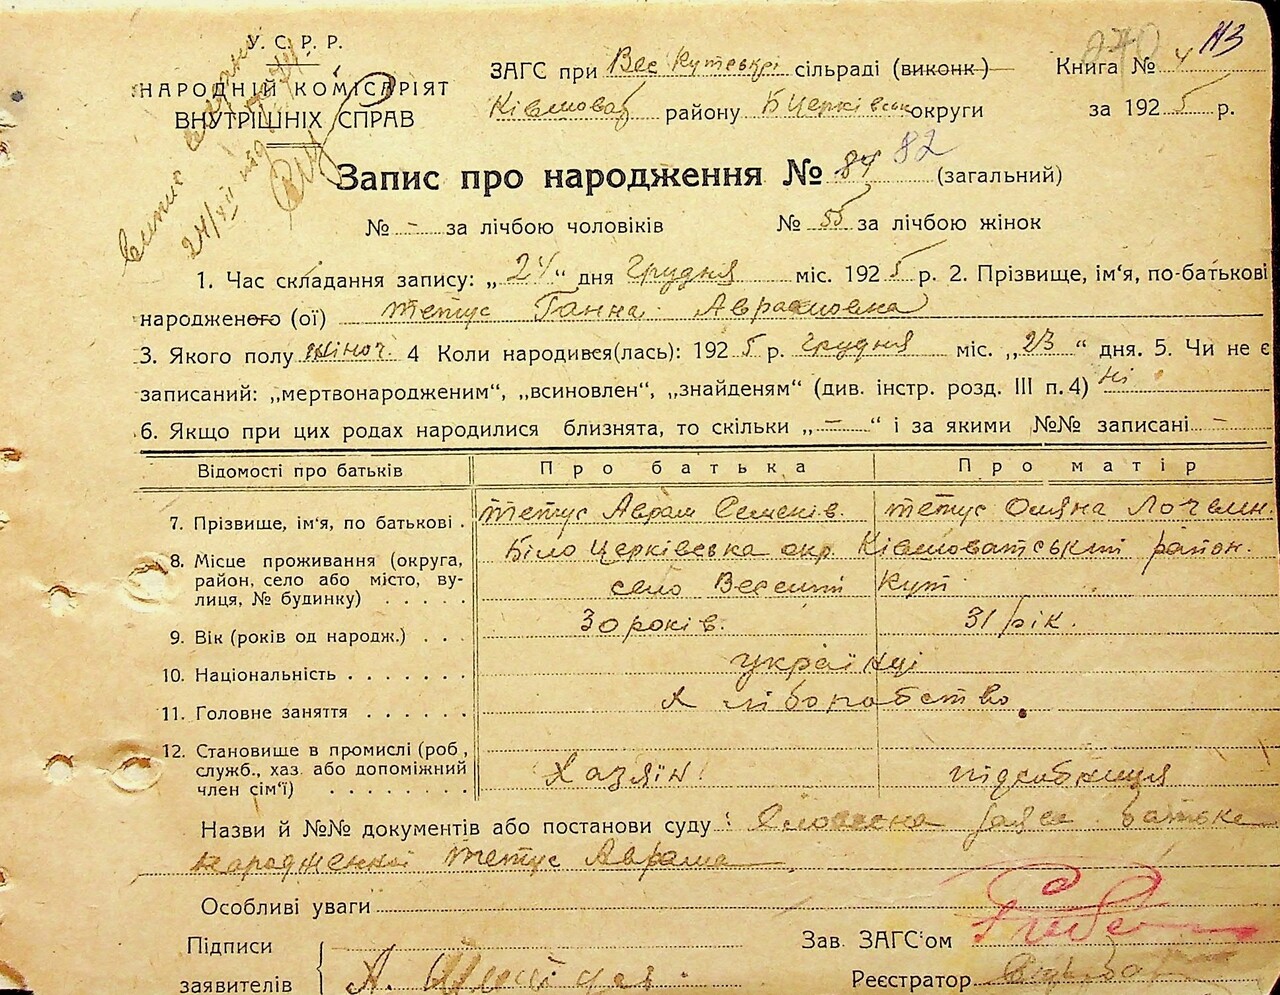 У. С. Р. Р.
НАРОДНІЙ КОМІСАРІЯТ
ВНУТРІШНІХ СПРАВ
24/XII
ЗАГС при Вес Кутській сільраді (виконк)
Книга № 4 113
району Б Церківськ округи за 1925 р.
Запис про народження № 84 82 (загальний)
№ - за лічбою чоловіків № 55 за лічбою жінок
1. Час складання запису: „24“ дня Грудня міс. 1925 р. 2. Прізвище, ім'я, по-батькові
народженого (ої) Тетус Ганна Аврамовна
3. Якого полу жіноч. 4 Коли народився(лась): 1925 р. Грудня міс. „23“ дня. 5. Чи не є
записаний: „мертвонародженим“, „всиновлен“, „знайденям“ (див. інстр. розд. III п. 4) ні
6. Якщо при цих родах народилися близнята, то скільки „—“ і за якими №№ записані -
Відомості про батьків Про батька Про матір
7. Прізвище, ім'я, по батькові . Тетус Аврам Семенів. Тетус Оляна
8. Місце проживання (округа, район, село або місто, вулиця, № будинку) . . . . . Біло Церківська окр. район.
село Веселий Кут
9. Вік (років од народж.) . . . 30 років. 31 рік.
10. Національність . . . . . . . українці
11. Головне заняття . . . . . . Хліборобство
12. Становище в промислі (роб., служб., хаз. або допоміжний член сім'ї) . . . . . . . . Хазяїн. підсобниця
Назви й №№ документів або постанови суду : Словесна заява батька
народженної Тетус Аврама
Особливі уваги
Підписи
заявителів
Зав. ЗАГС'ом
Реєстратор